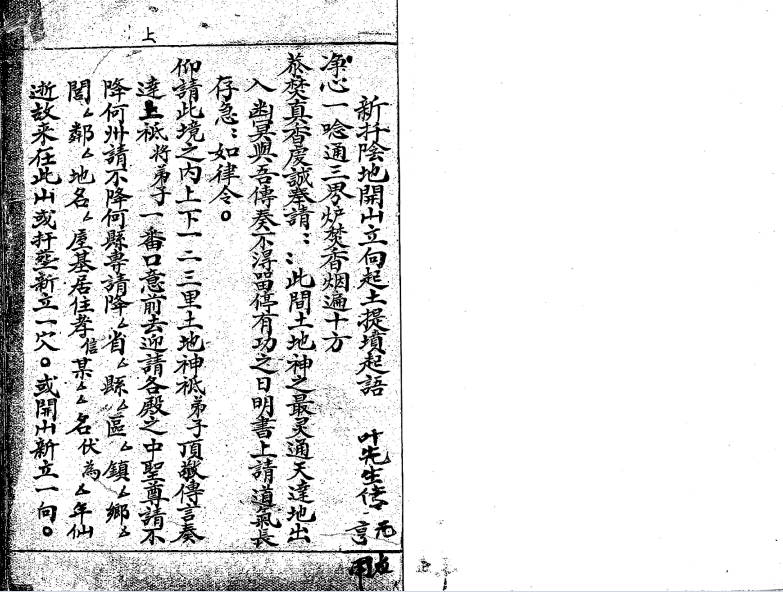 上
新扦陰地開山立向起土提墳起語
叶先生传 元亨
净心一唸通三界炉焚香烟遍十方
恭焚真香虔誠奉請：：此間土地神之最灵通天達地出
入幽冥與吾傳奏不得留停有功之日明書上請道氣長
存急：如律令。
仰請此境之内上下一二三里土地神祇弟子頂敬傳言奏
達上祇將弟子一番口意前去迎請各殿之中聖尊請不
降何州請不降何縣專請降厶省厶縣厶區厶鎮厶鄉厶
閭厶鄰厶地名厶屋基居住孝信某厶厶名伏為厶年仙
逝故来在此山或扦塟新立一穴。或開山新立一向。